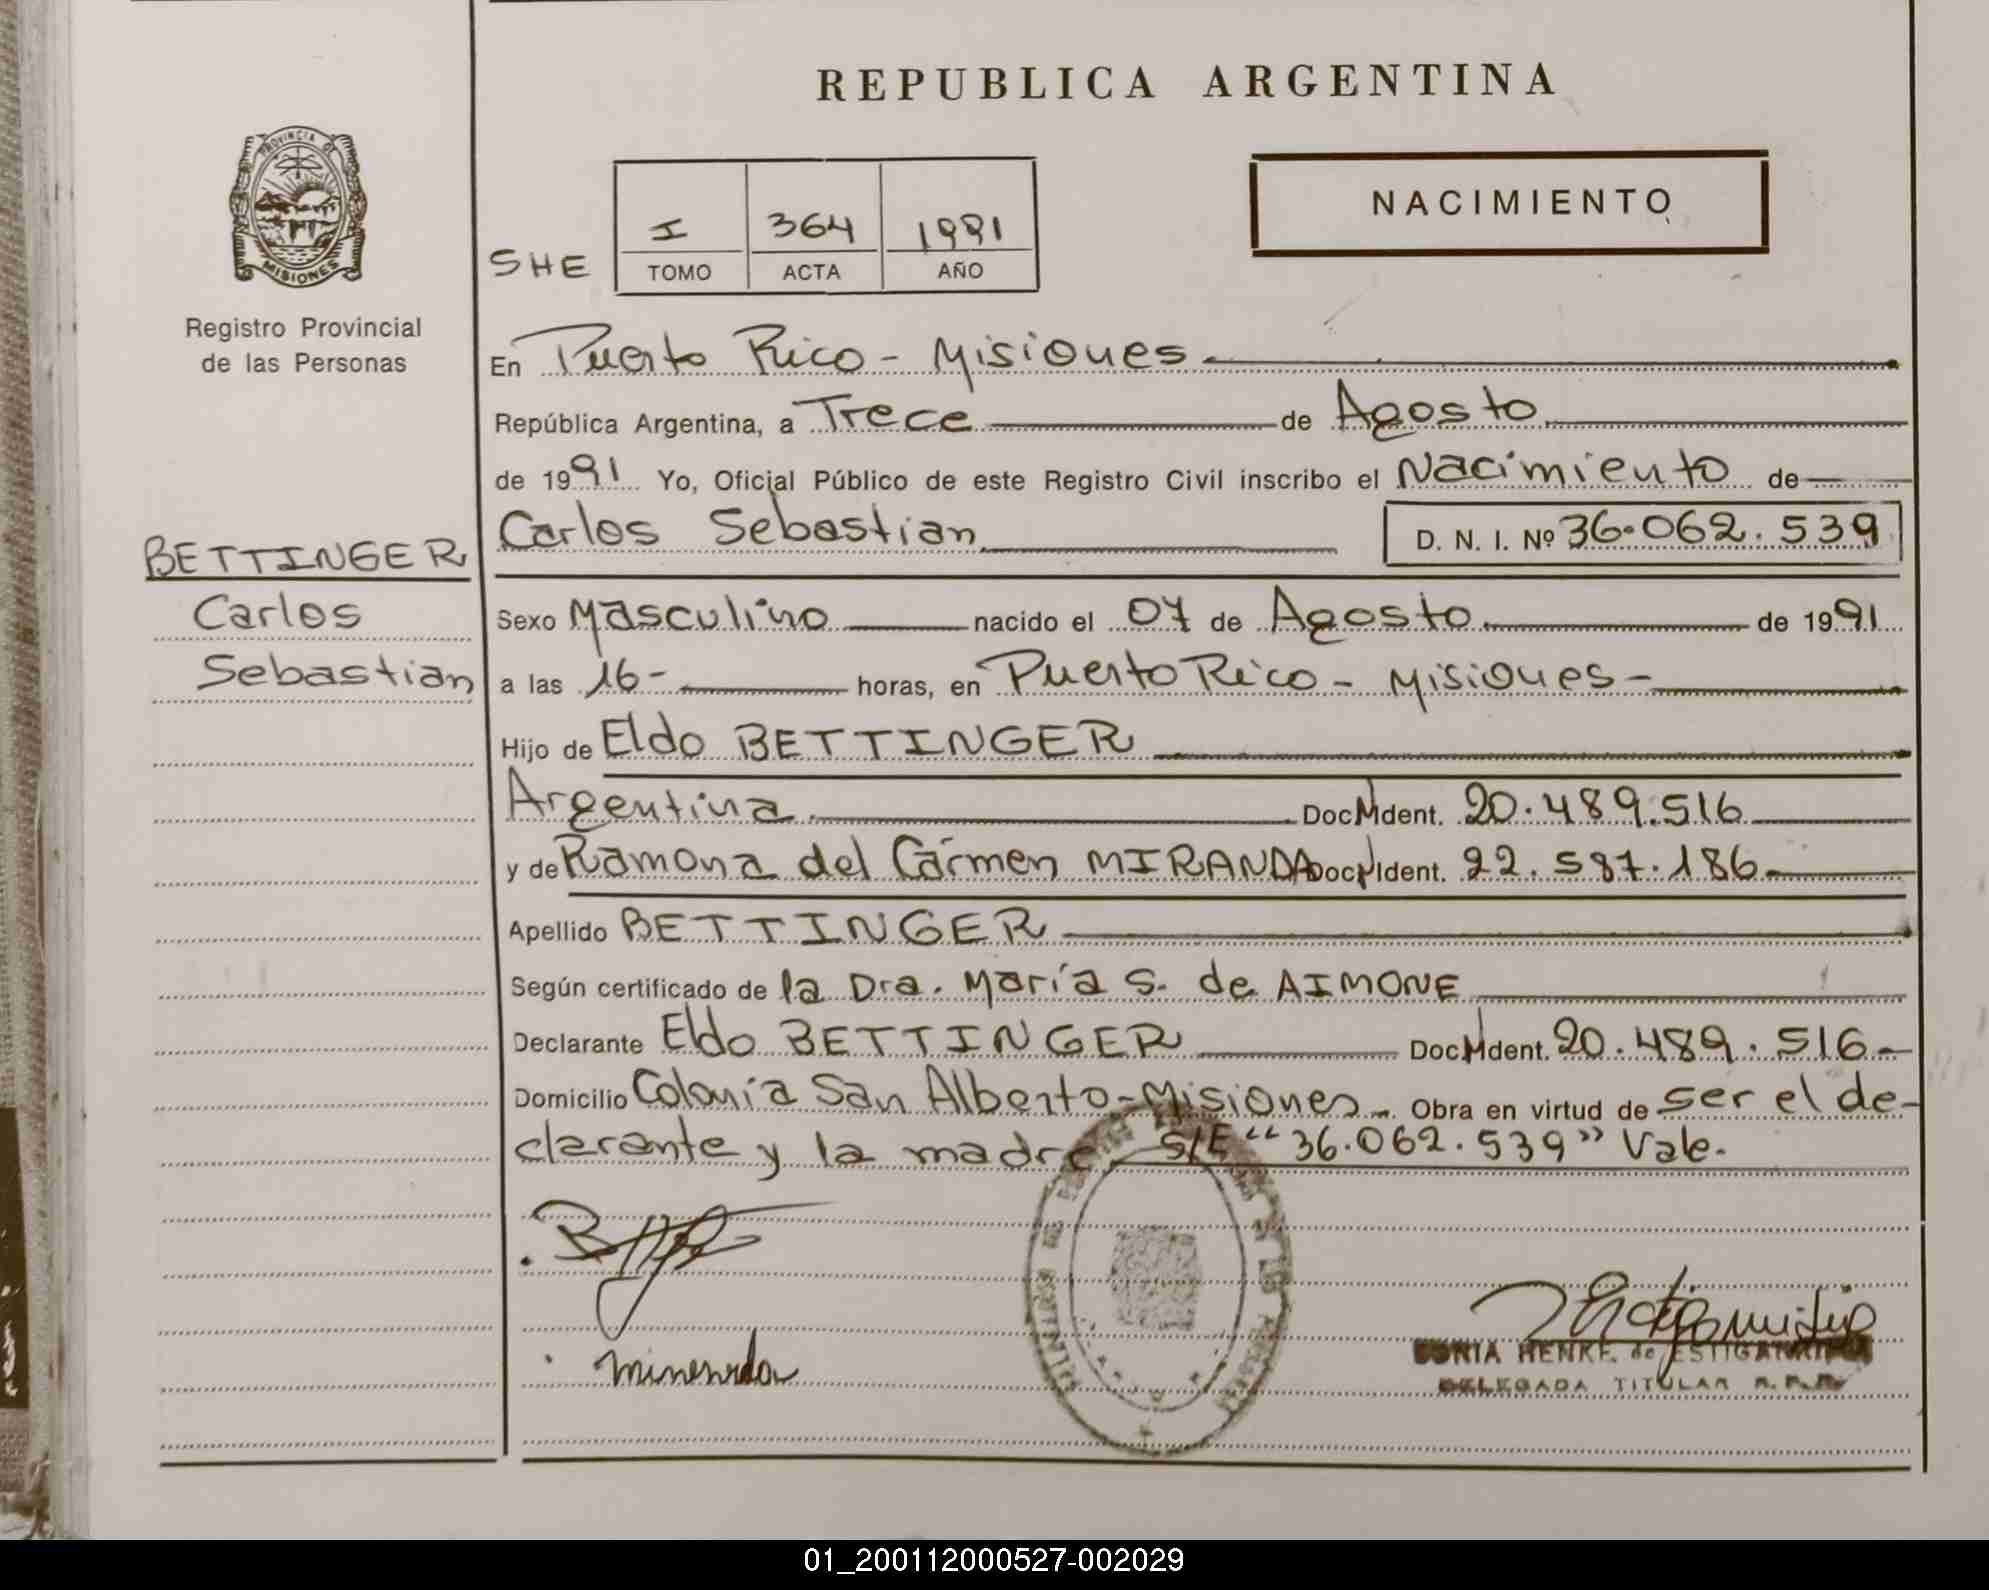 REPUBLICA ARGENTINA
PROVINCIA DE
MISIONES
Registro Provincial
de las Personas
NACIMIENTO
SHE
I 364 1991
TOMO ACTA AÑO
En Puerto Rico - Misiones
República Argentina, a Trece de Agosto
de 1991 Yo, Oficial Público de este Registro Civil inscribo el Nacimiento de
Carlos Sebastian D. N. I. Nº 36.062.539
BETTINGER
Carlos
Sebastian
Sexo Masculino nacido el 07 de Agosto de 1991
a las 16- horas, en Puerto Rico - Misiones-
Hijo de Eldo BETTINGER
Argentina Doc. Ident. 20.489.516
y de Ramona del Carmen MIRANDA Doc. Ident. 22.587.186
Apellido BETTINGER
Según certificado de la Dra. María S. de AIMONE
Declarante Eldo BETTINGER Doc. Ident. 20.489.516-
Domicilio Colonia San Alberto-Misiones Obra en virtud de ser el de-
clarante y la madre S/E "36.062.539" Vale.
SONIA HENKE de ESTIGARRIBIA
DELEGADA TITULAR R.P.P.
01_200112000527-002029